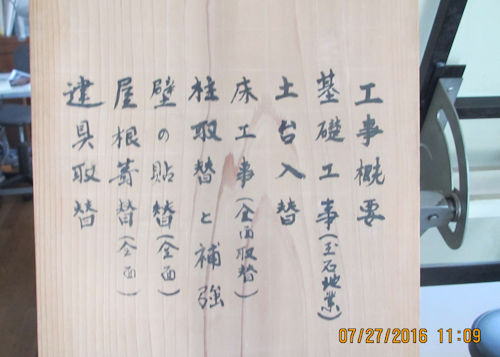 工事概要
基礎工事(玉石地業)
土台入替
床工事(全面取替)
柱取替と補強
壁の貼替(全面)
屋根葺替(全面)
建具取替
07/27/2016 11:09